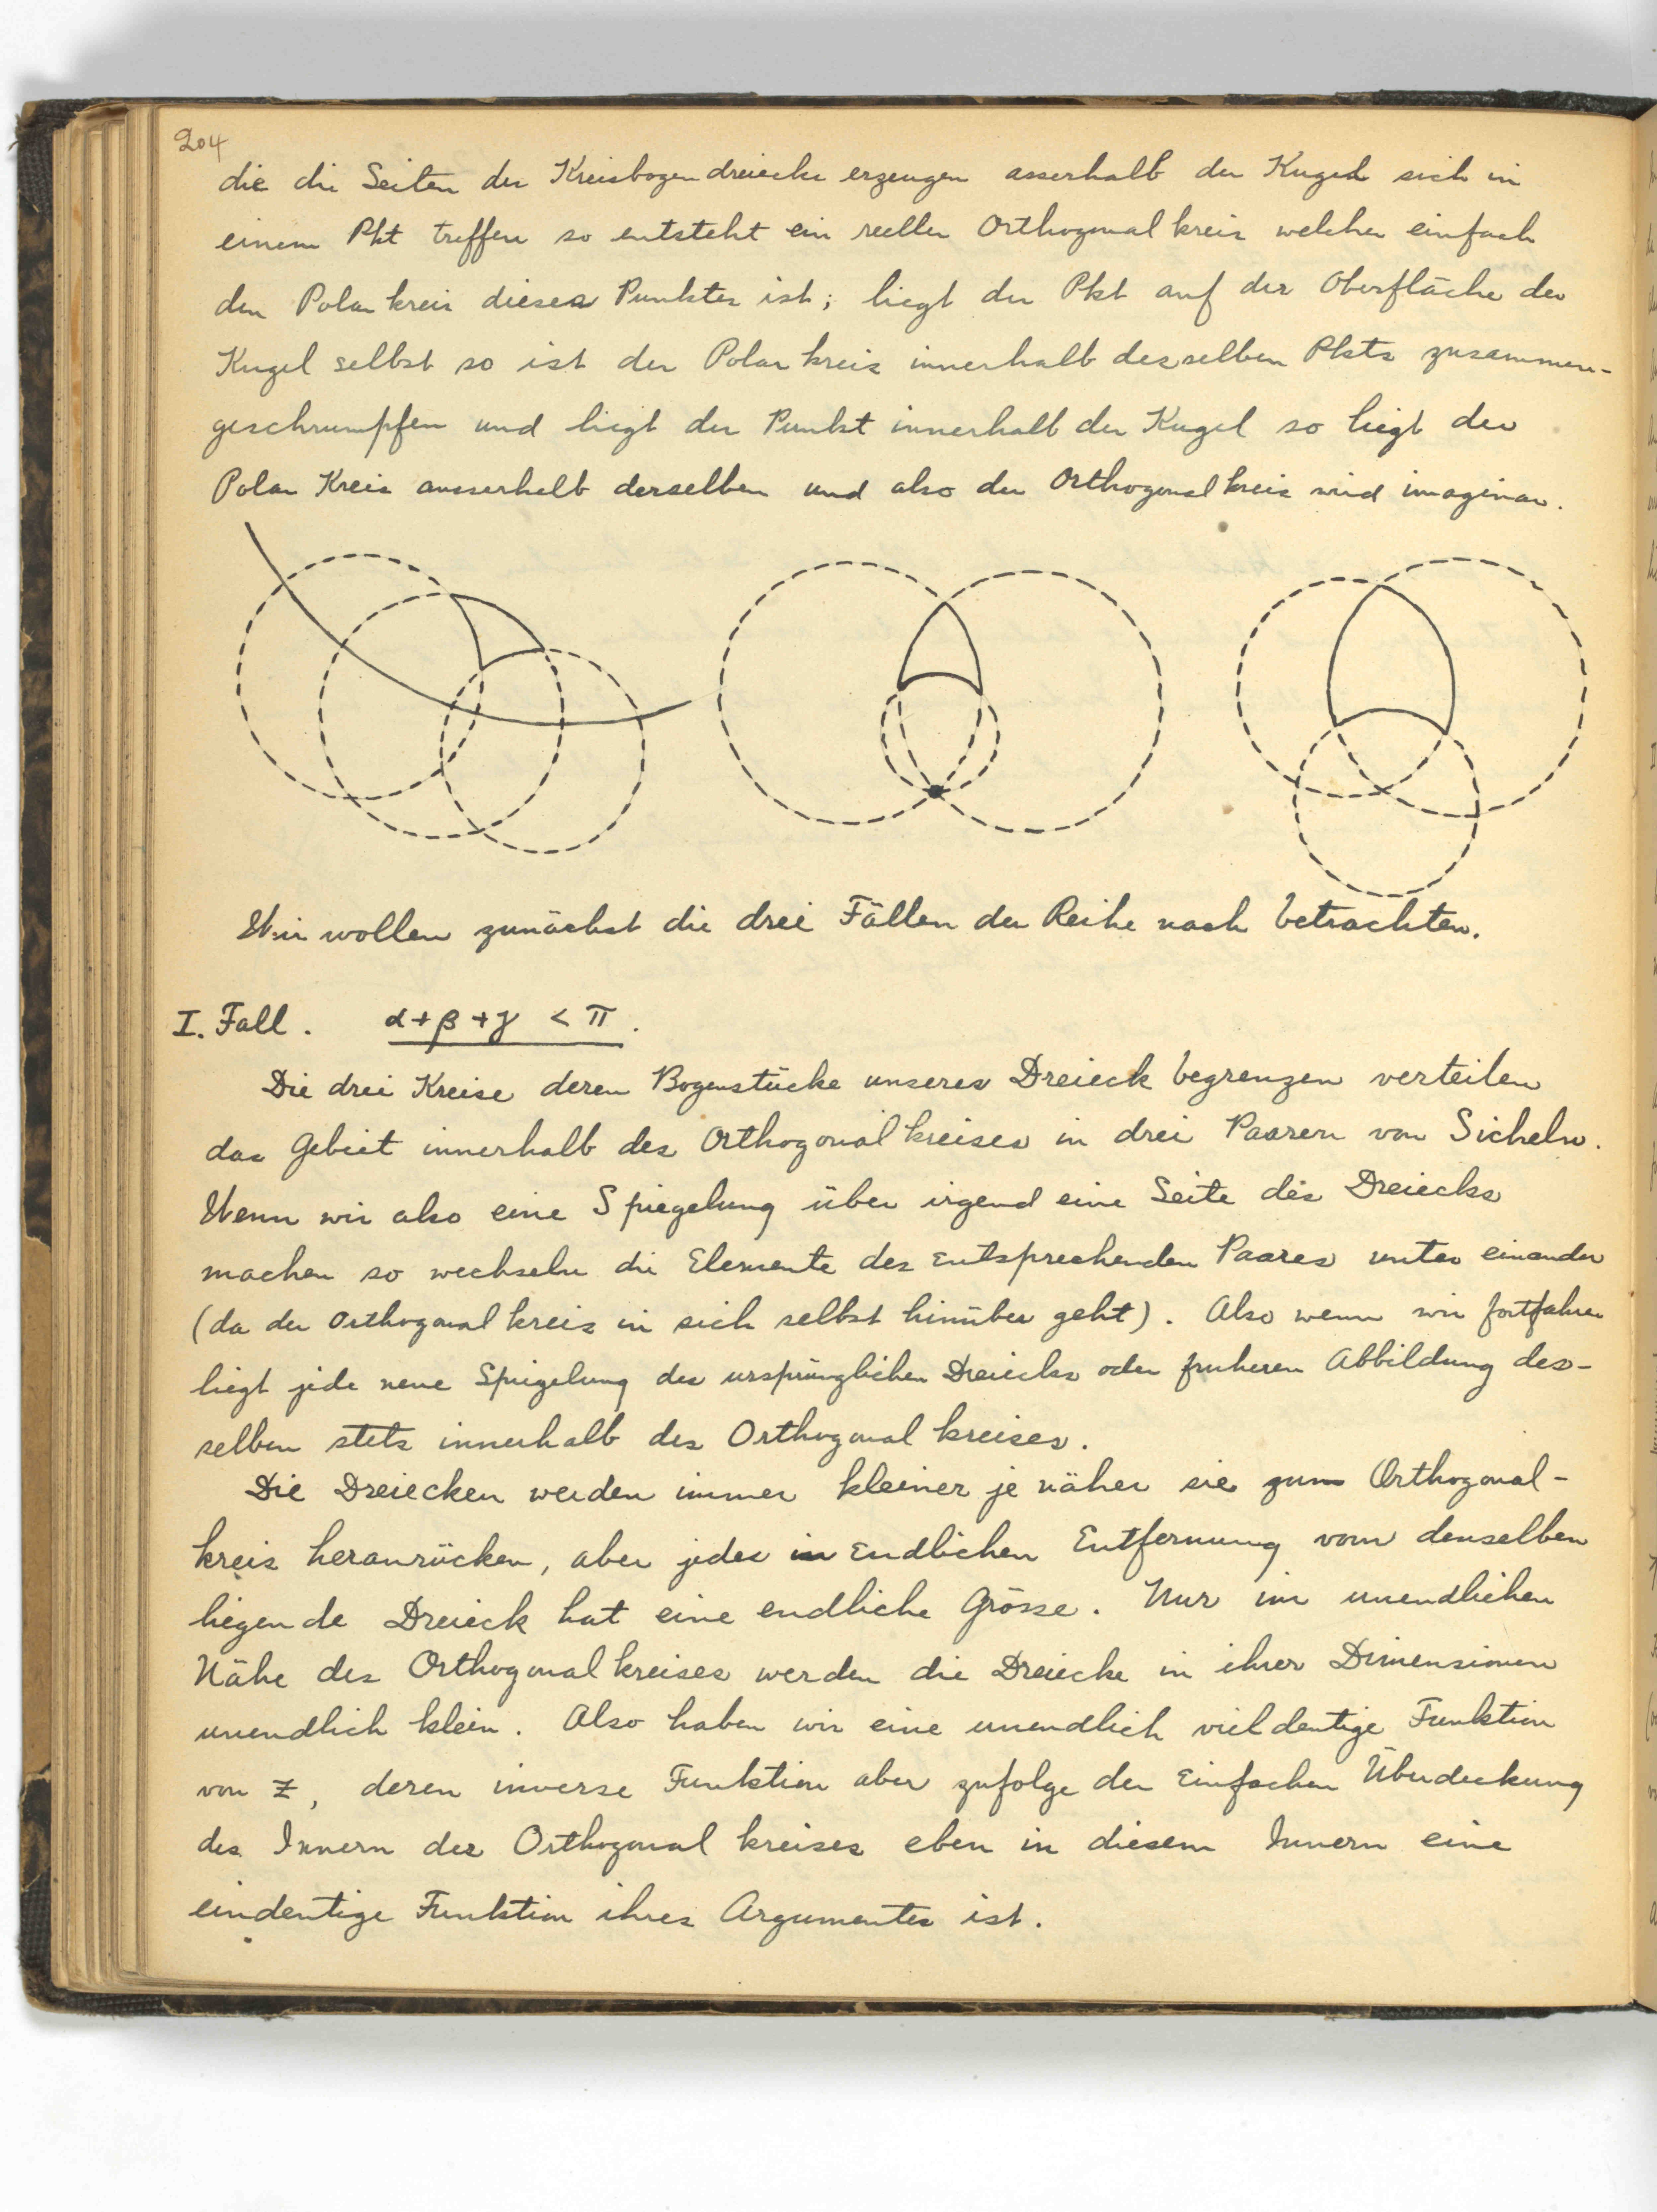 204
die die Seiten der Kreisbogendreiecke erzeugen asserhalb der Kugel sich in
einem Pkt treffen so entsteht ein reeller Orthogonalkreis welcher einfach
den Polarkreis dieses Punktes ist; liegt der Pkt auf der Oberfläche der
Kugel selbst so ist der Polarkreis innerhalb desselben Pkts zusammen-
geschrumpfen und liegt der Punkt innerhalb der Kugel so liegt der
Polar Kreis ausserhalb derselben und also der Orthogonalkreis wird imaginar.
Wir wollen zunächst die drei Fällen der Reihe nach betrachten.
I. Fall. α+β+γ < π.
Die drei Kreise deren Bogenstücke unseres Dreieck begrenzen verteilen
das Gebiet innerhalb des Orthogonalkreises in drei Paaren von Sicheln.
Wenn wir also eine Spiegelung über irgend eine Seite des Dreiecks
machen so wechseln die Elemente des Entsprechenden Paares unter einander
(da der Orthogonalkreis in sich selbst hinüber geht). Also wenn wir fortfahren
liegt jede neue Spiegelung des ursprünglichen Dreiecks oder fruheren Abbildung des-
selben stets innerhalb des Orthogonalkreises.
Die Dreiecken werden immer kleiner je näher sie zum Orthogonal-
kreis heranrücken, aber jedes in Endlichen Entfernung vom denselben
liegende Dreieck hat eine endliche Grösse. Nur im unendlichen
Nähe des Orthogonalkreises werden die Dreiecke in ihrer Dimensionen
unendlich klein. Also haben wir eine unendlich vieldeutige Funktion
von Z, deren inverse Funktion aber zufolge der Einfachen Überdeckung
des Innern des Orthogonalkreises eben in diesem Innern eine
eindeutige Funktion ihres Argumentes ist.